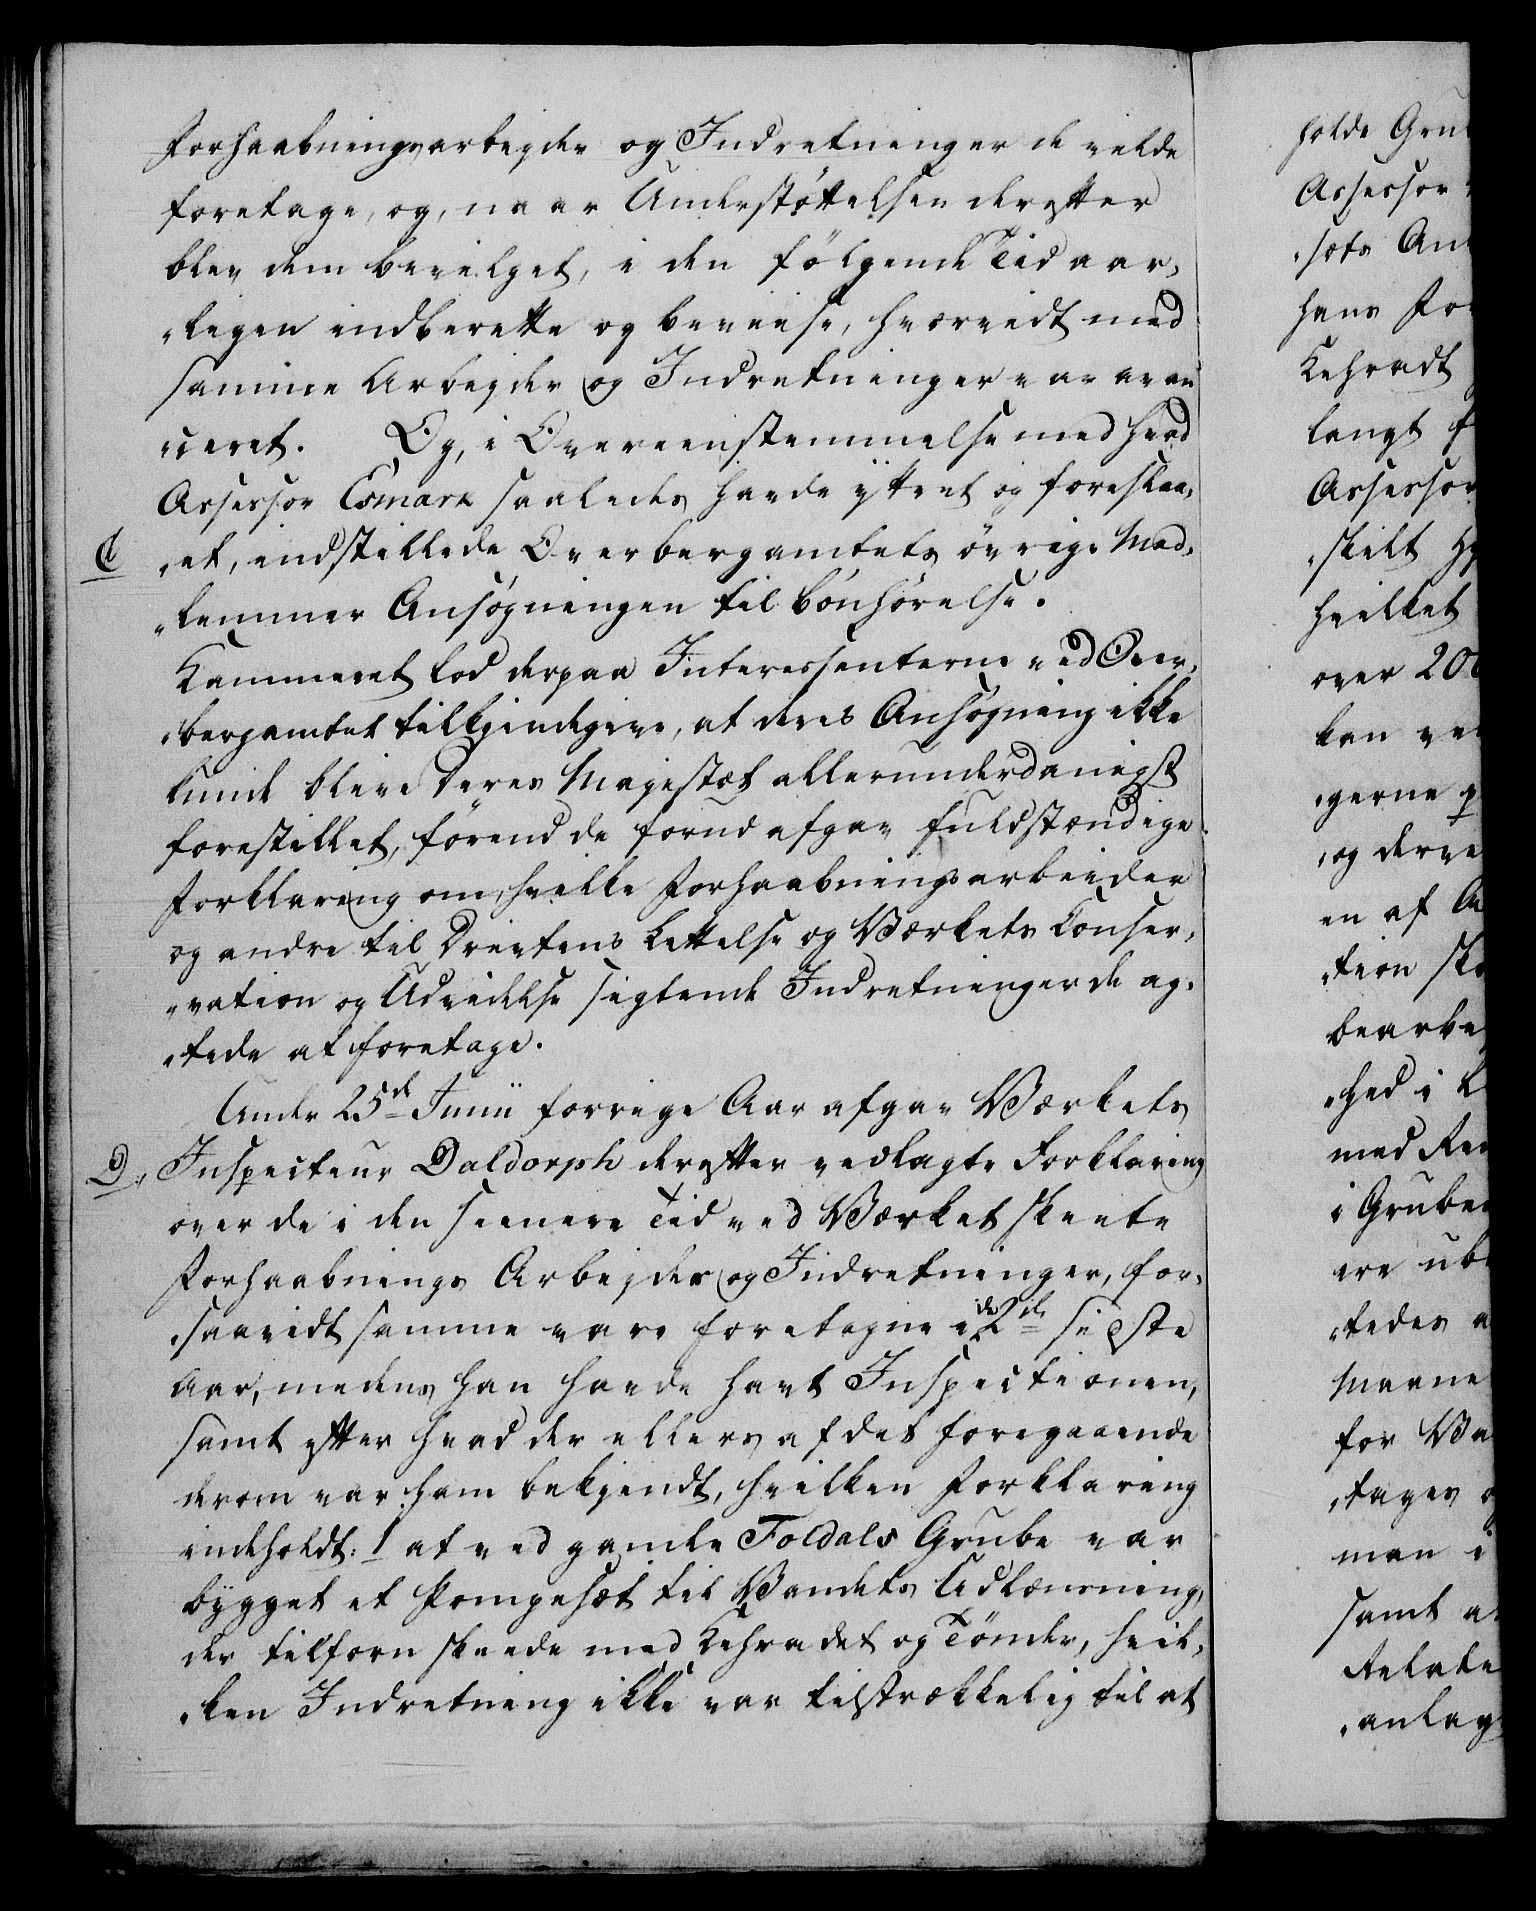 Forhaabningsarbeyder og Indretninger de vilde
foretage, og, naar Understøttelsen derefter
blev dem bevilget, i den følgende Tid aar,
"ligen indberette og beviise, hvorvidt med
samme Arbeyder og Indretninger var avan
ceret. Og, i Overeenstemmelse med hvad
Assessor Esmark saaledes havde yttret og foreslaa,
C "et, indstillede Overbergamtets øvrige Med,
"lemmer Ansøgningen til bønhørelse.
Kammeret lod derpaa Interessenterne ved Over,
"bergamtet tilkjendegive, at deres Ansøgning ikke
kunde blive Deres Majestæt allerunderdanigst
forestillet, førend de forud afgav fuldstændige
Forklaring om, hvilke Forhaabningsarbeider
og andre til Driftens Lettelse og Værkets Conser,
"vation og Udvidelse sigtende Indretninger de ag,
"tede at foretage.
Under 25de Junii forrige Aar afgav Værkets
D., Inspecteur Daldorph derefter vedlagte Forklaring
over de i den seenere Tid ved Værket skeete
Forhaabnings Arbeyder og Indretninger, for,
"saavidt samme vare foretagne i de 2de sidste
Aar, medens han havde havt Inspectionen,
samt efter hvad der ellers af det foregaaende
derom var ham bekjendt, hvilken Forklaring
indeholdt: 1 at ved gamle Foldals Grube var
bygget et Pompesæt til Vandets Udlændsning,
der tilforn skeede med Kehradet og Tønder, hvil,
"ken Indretning ikke var tilstrækkelig til at
holde Gru
Assessor
"sets An
hans For
Kehradt
langt f
Assessor
"skilt Hy
hvilket
over 200
kan ve
"gerne p
"og derve
en af A
"tion Sk
bearbe
"hed i
med Re
i Gruben
ere ub
"tedes a
Maane
for Va
"tages o
man i
samt a
Relate
"anlag